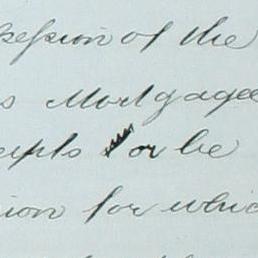 ssession of the
s Mortgagee
eipts or be
sion for which